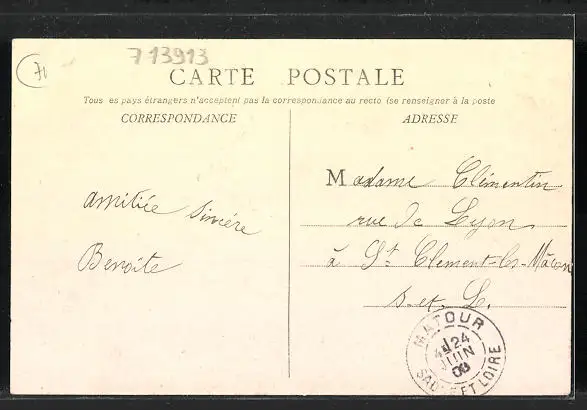 713913
71
CARTE POSTALE
Tous les pays étrangers n'acceptent pas la correspondance au recto (se renseigner à la poste
CORRESPONDANCE
ADRESSE
Amitiée Sincére
Benoite
Madame Clémentin
rue de Lyon
à St Clement-les-Mâcon
S. et. L.
MATOUR
24
JUIN
SAÔNE ET LOIRE